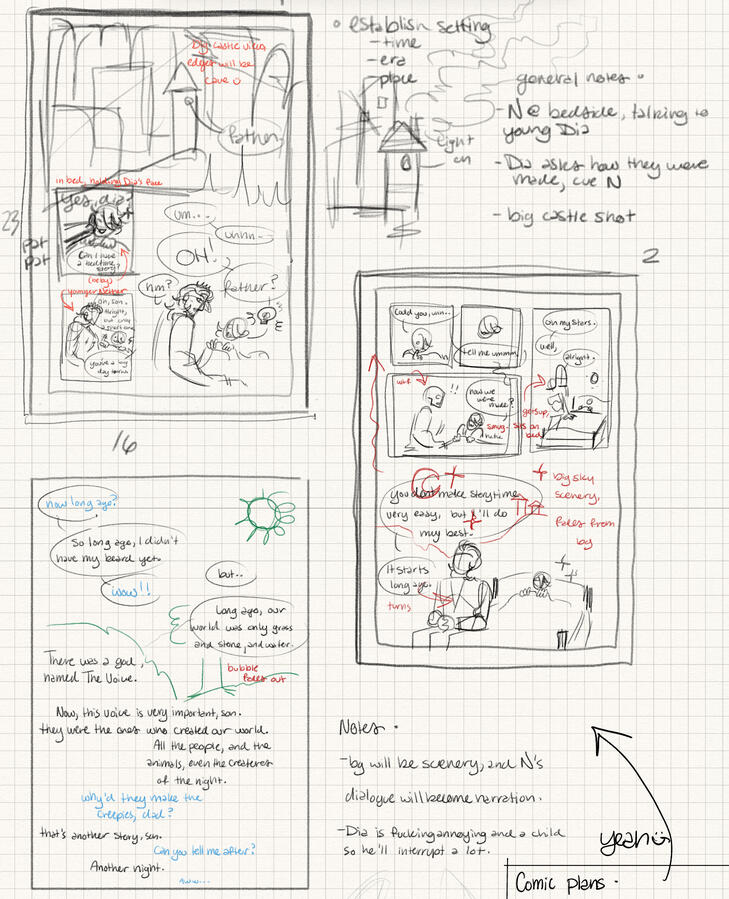 Big castle view
edges will be
cave
Father.
in bed, holding Dia's face
Yes, dia?
23
pat
pat
Can I have
a bedtime
story?
(baby)
younger Nether
Oh, son.
Alright,
but only
a short one
you've a big
day tomrw
um...
uhhh...
OH!
hm?
father?
16
• establish setting
- time
- era
place
light
on
general notes •
- N @ bedside, talking to
young Dia
- Dia asks how they were
made, cue N
- big castle shot
2
Could you, um..
tell me ummm,
oh my stars.
well,
alright.
!!
how we
were
made?
gets up,
sits on
bed
you dont make storytime
very easy, but I'll do
my best.
It starts
long ago.
turns
big sky
scenery,
fades from
bg
how long ago?
So long ago, I didn't
have my beard yet.
wow!!
but..
Long ago, our
world was only grass
and stone, and water.
bubble
fades out
There was a god,
named The Voice.
Now, this voice is very important, son.
they were the ones who created our world.
All the people, and the
animals, even the creatures
of the night.
why'd they make the
creepies, dad?
that's another story, son.
Can you tell me after?
Another night.
aww...
Notes •
- bg will be scenery, and N's
dialogue will become narration.
- Dia is fucking annoying and a child
so he'll interrupt a lot.
yeah
Comic plans •